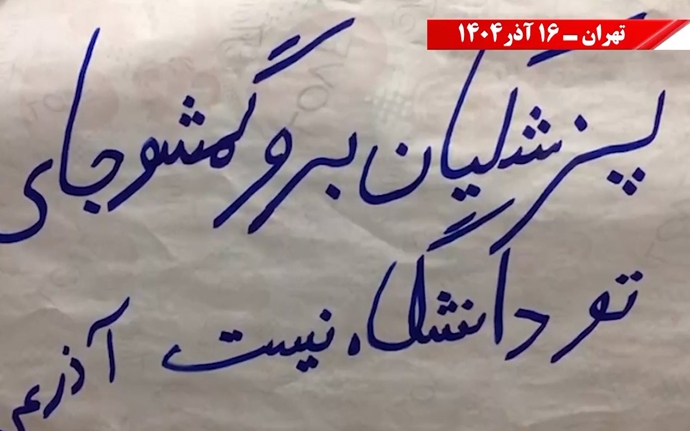 تهران ــ ۱۶ آذر ۱۴۰۴
پزشکیان برو گمشو جای
تو دانشگاه نیست آذر